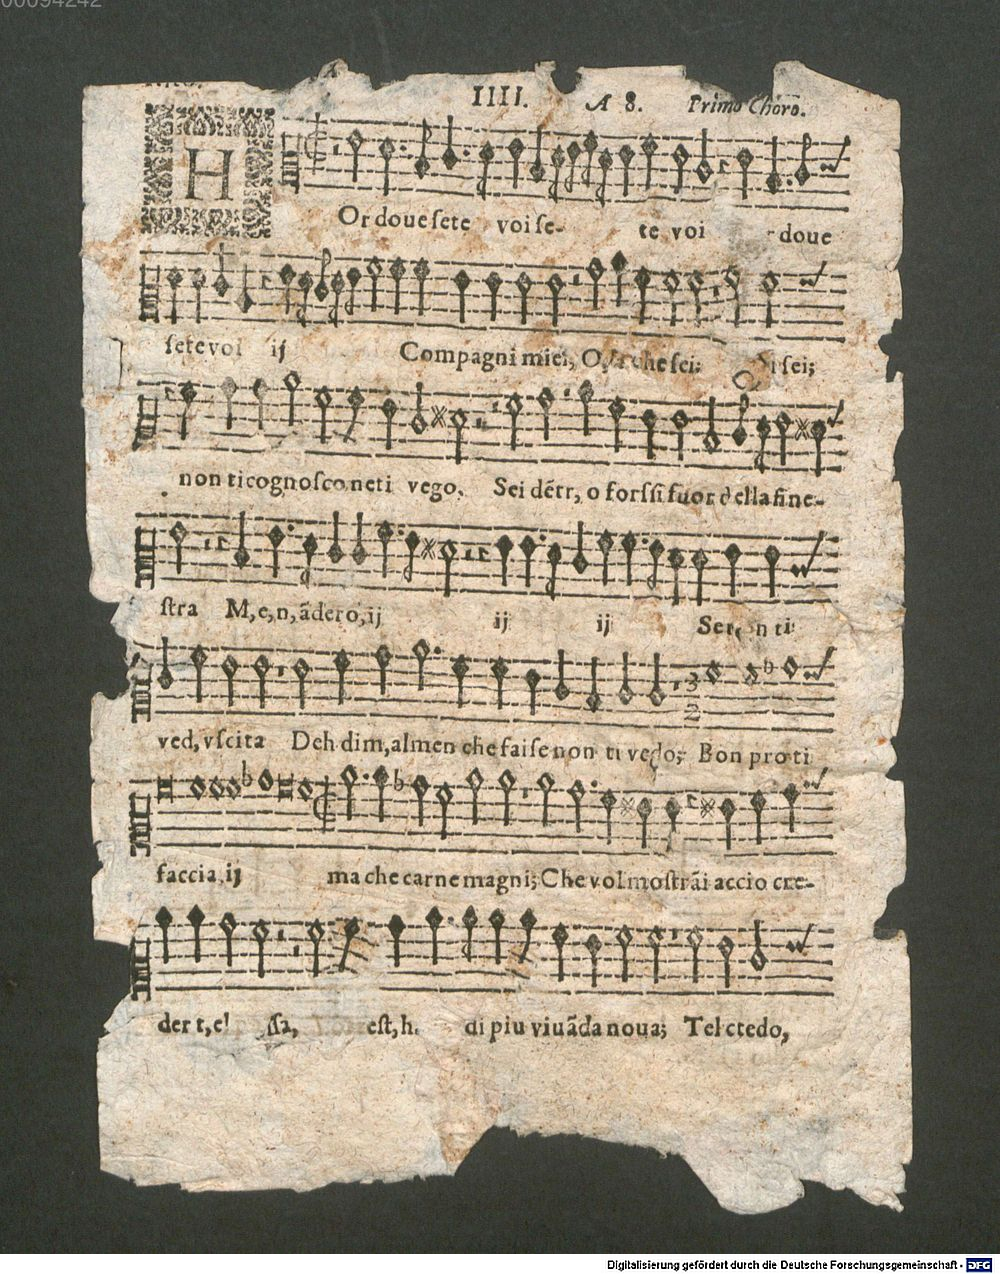 00094242
IIII. A 8. Primo Choro.
H
Or doue sete voi se- te voi doue
sete voi ij Compagni miei, O che sei; sei;
non ti cognosco ne ti vego. Sei dẽtr, o forssi fuor della fine-
stra M, e, n, ãdero, ij ij ij ti
ved, vscita Deh dim, almen che fai se non ti vedo; Bon pro ti
faccia, ij ma che carne magni; Che vol mostrãi accio cre-
der t, est, h. di piu viuãda noua; Tel ctedo,
Digitalisierung gefördert durch die Deutsche Forschungsgemeinschaft - DFG